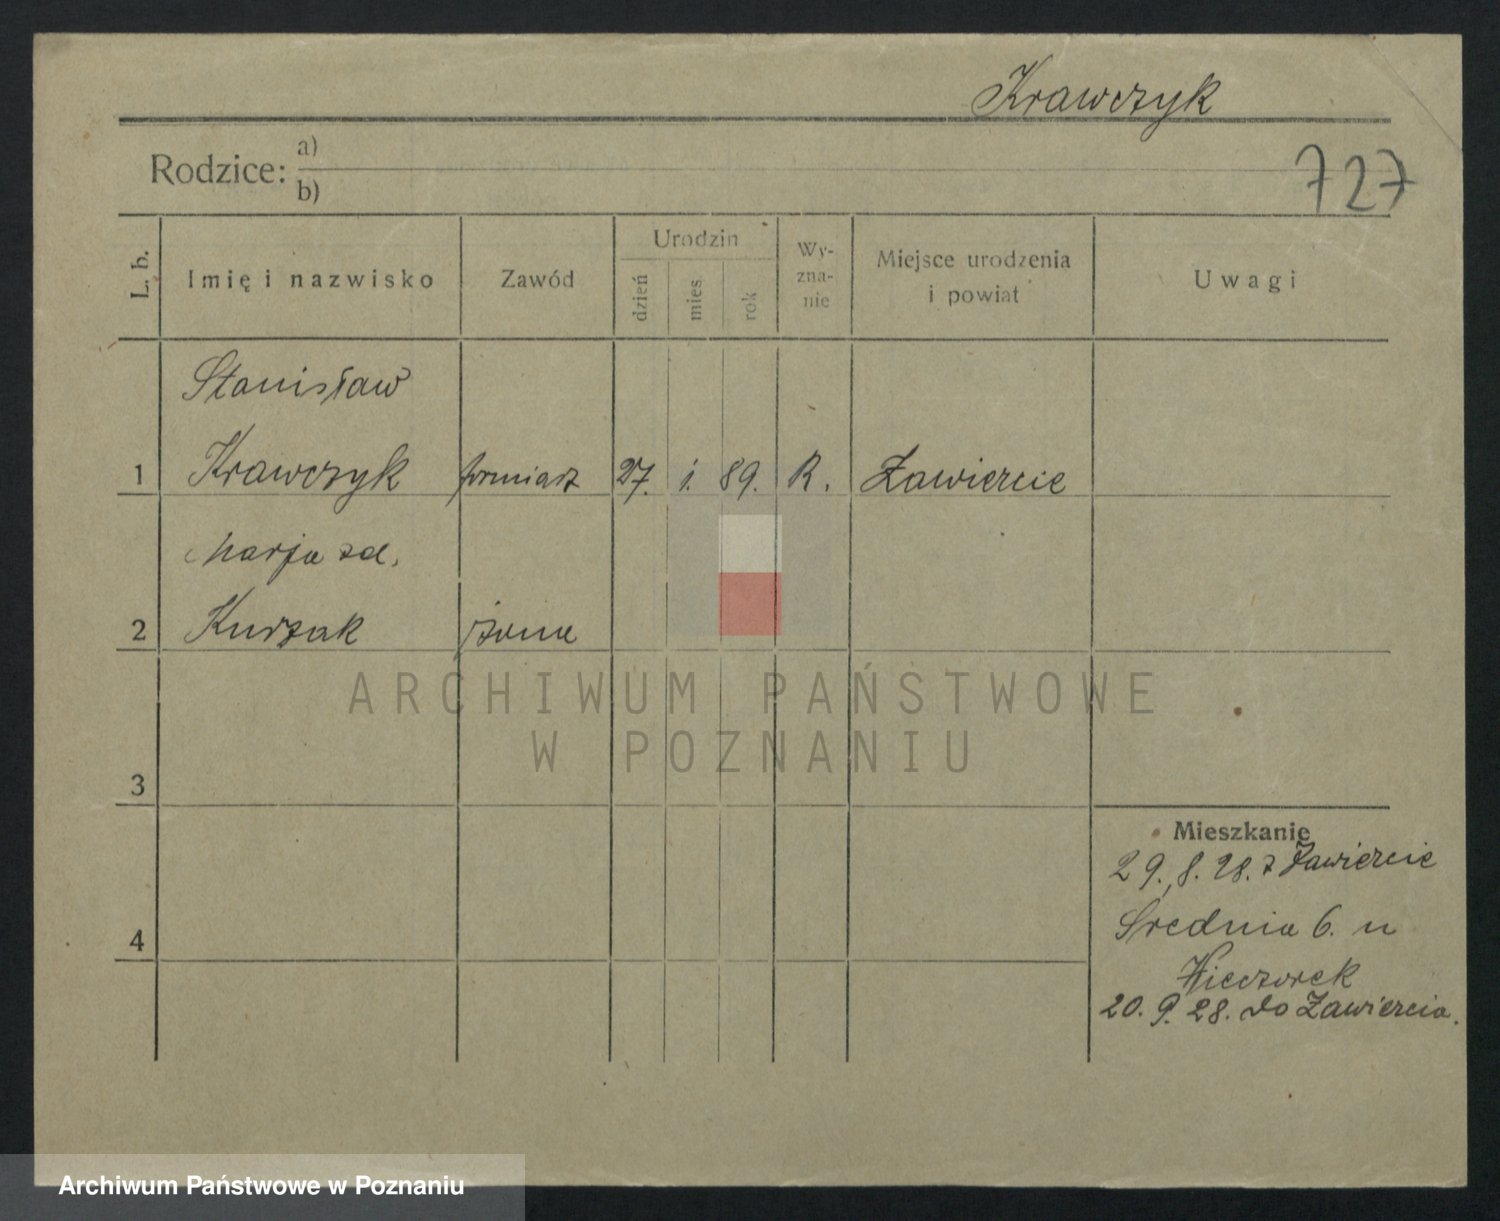 Krawczyk
Rodzice: a)
b)
727
L. b.
Imię i nazwisko
Zawód
Urodzin
dzień
mies.
rok
Wy-
zna-
nie
Miejsce urodzenia
i powiat
Uwagi
Stanisław
1 Krawczyk formiarz 27. i. 89. R. Zawiercie
Marja zd.
2 Kurzak żona
ARCHIWUM PAŃSTWOWE
W POZNANIU
3
Mieszkanie
29. 8. 28. z Zawiercie
Średnia 6. u
4
Wieczorek
20. 9. 28. do Zawiercia.
Archiwum Państwowe w Poznaniu